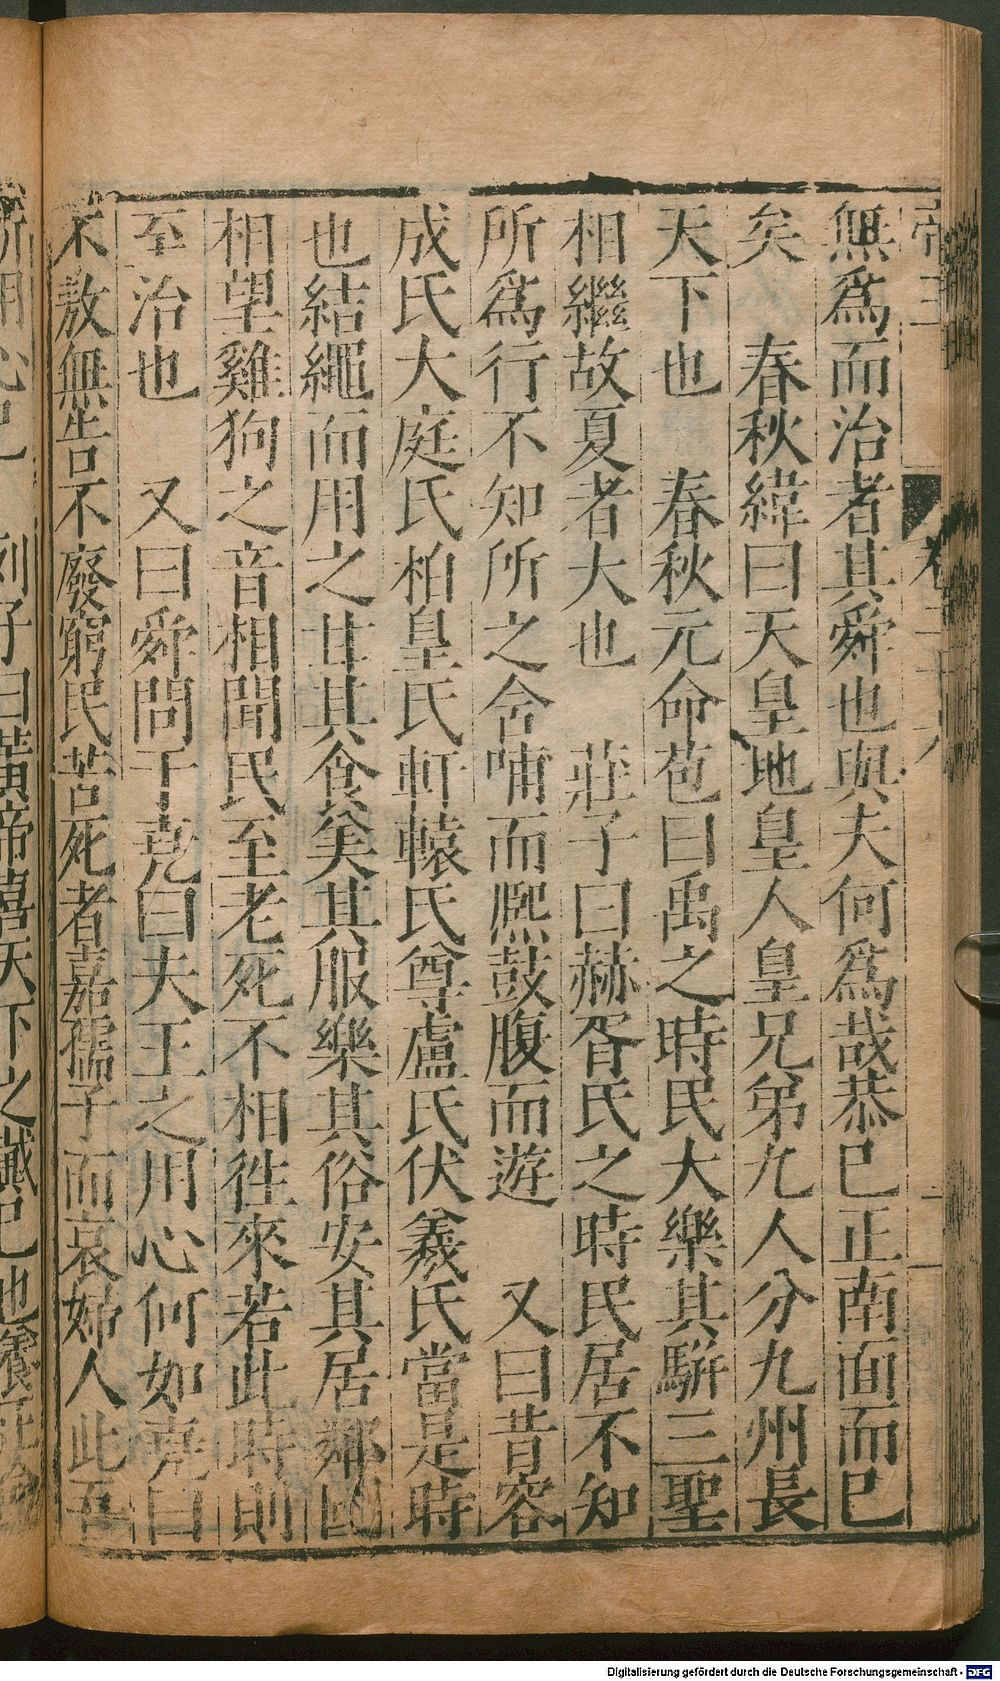 無爲而治者其舜也與夫何爲哉恭已正南面而已
矣　春秋緯曰天皇地皇人皇兄弟九人分九州長
天下也　春秋元命苞曰禹之時民大樂其駢三聖
相繼故夏者大也　莊子曰赫胥氏之時民居不知
所爲行不知所之含哺而熈鼓腹而遊　又曰昔容
成氏大庭氏柏皇氏軒轅氏尊盧氏伏羲氏當是時
也結繩而用之甘其食美其服樂其俗安其居鄰國
相望雞狗之音相聞民至老死不相徃來若此時則
至治也　又曰舜問于堯曰夫王之用心何如堯曰
不敖無告不廢窮民苦死者嘉孺子而哀婦人此吾
所用心已　列子曰黃帝喜天下之戴已也養
Digitalisierung gefördert durch die Deutsche Forschungsgemeinschaft - DFG